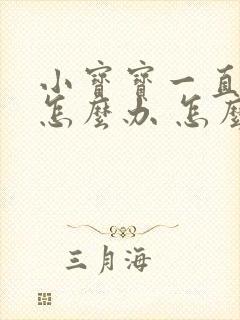 小寶寶一直
怎麼办 怎麼
三月海